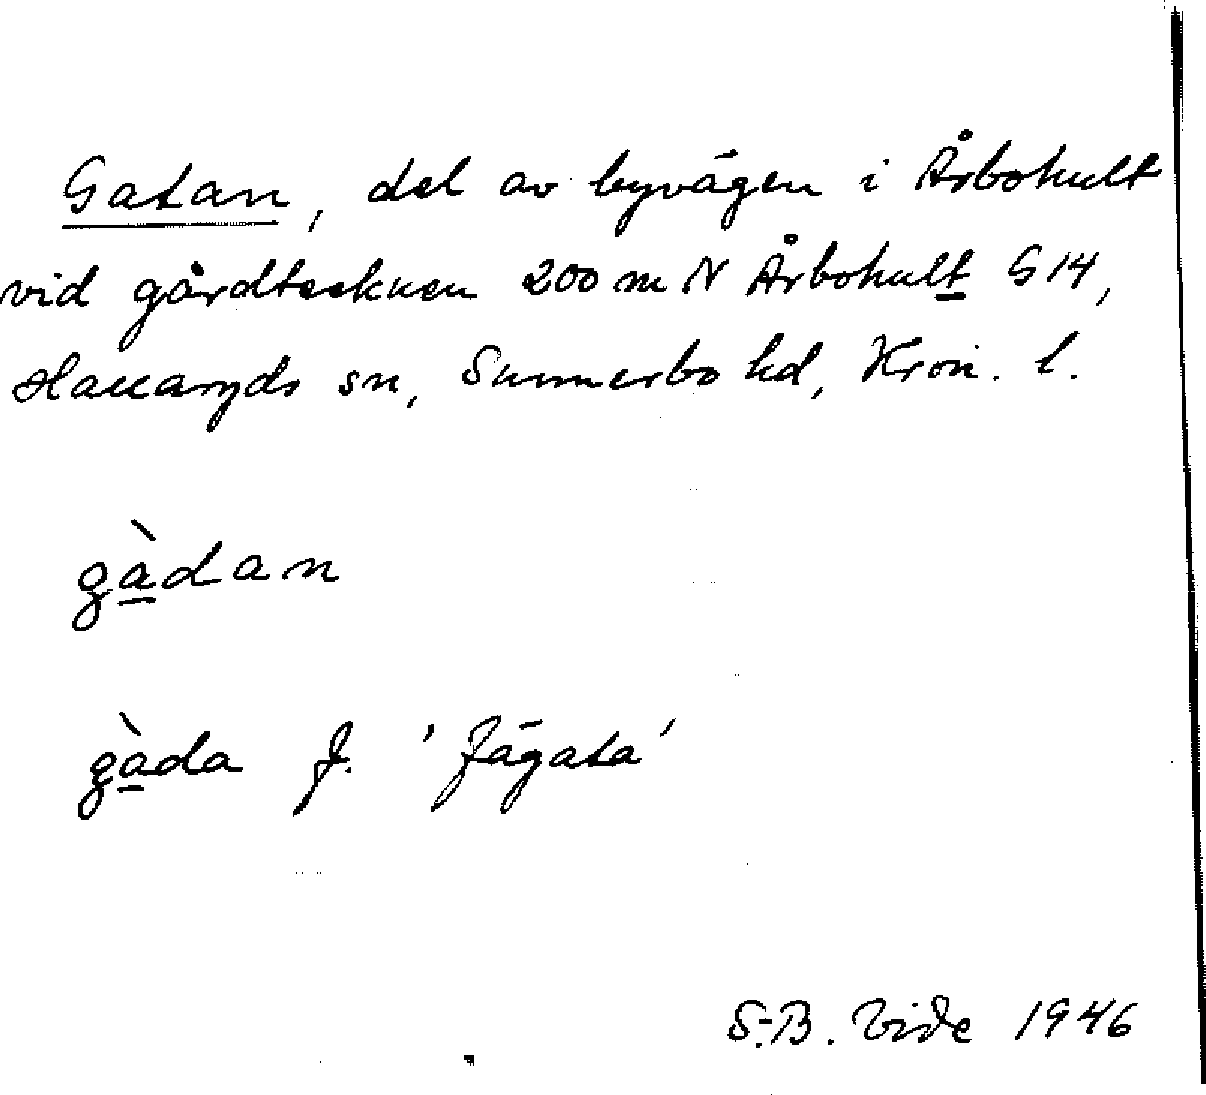 Gatan, del av byvägen i Årbohult
vid gårdtecknen 200 m N Årbohult S 14,
Hallaryds sn, Sunnerbo hd, Kron. l.
gàdan
gàda f. 'fägata'
S.-B. Vide 1946